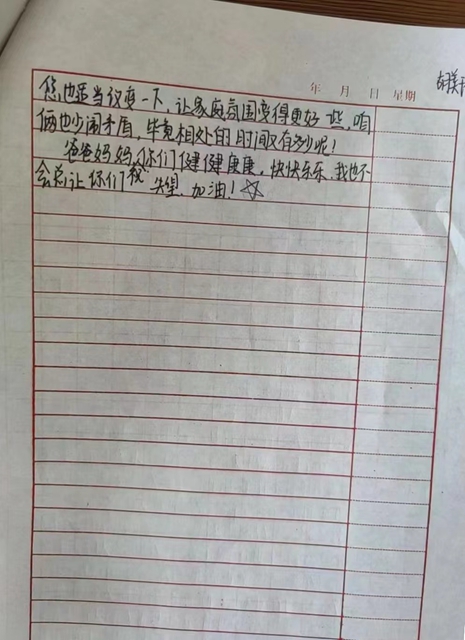 年 月 日 星期
您也适当改变一下，让家庭氛围变得更好一些，咱
俩也少闹矛盾，毕竟相处的时间又有多少呢！
爸爸妈妈，你们健健康康，快快乐乐，我也不
会总让你们我失望，加油！☆